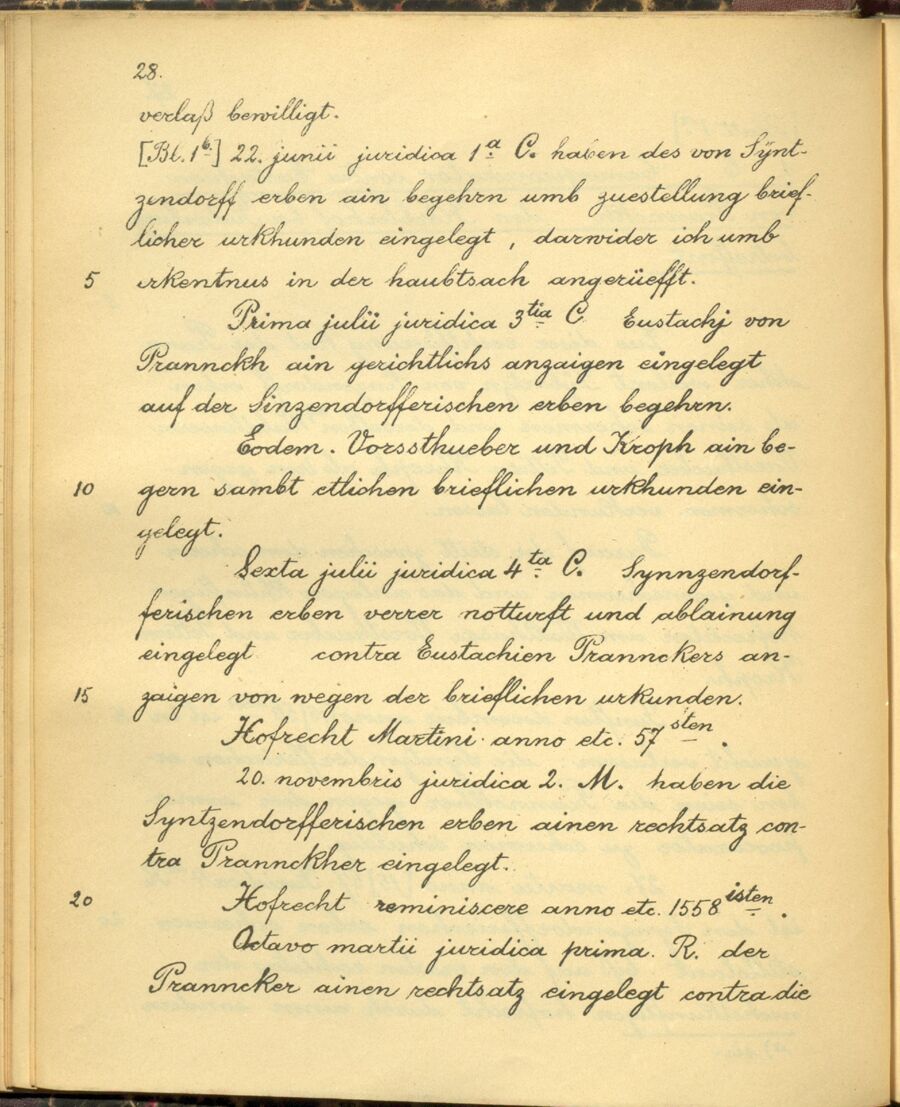 28.
verlaß bewilligt.
[Bl. 1b.] 22. junii juridica 1a C. haben des von Sÿnt-
zendorff erben ain begehrn umb zuestellung brief-
licher urkhunden eingelegt, darwider ich umb
5 erkentnus in der haubtsach angerüefft.
Prima julii juridica 3tia C. Eustachj von
Prannckh ain gerichtlichs anzaigen eingelegt
auf der Sinzendorfferischen erben begehrn.
Eodem. Vorssthueber und Kroph ain be-
10 gern sambt etlichen brieflichen urkhunden ein-
gelegt.
Sexta julii juridica 4ta C. Synnzendorf-
ferischen erben verrer notturft und ablainung
eingelegt contra Eustachien Prannckers an-
15 zaigen von wegen der brieflichen urkunden.
Hofrecht Martini anno etc. 57sten.
20. novembris juridica 2. M. haben die
Syntzendorfferischen erben ainen rechtsatz con-
tra Prannckher eingelegt.
20 Hofrecht reminiscere anno etc. 1558isten.
Octavo martii juridica prima. R. der
Pranncker ainen rechtsatz eingelegt contra die